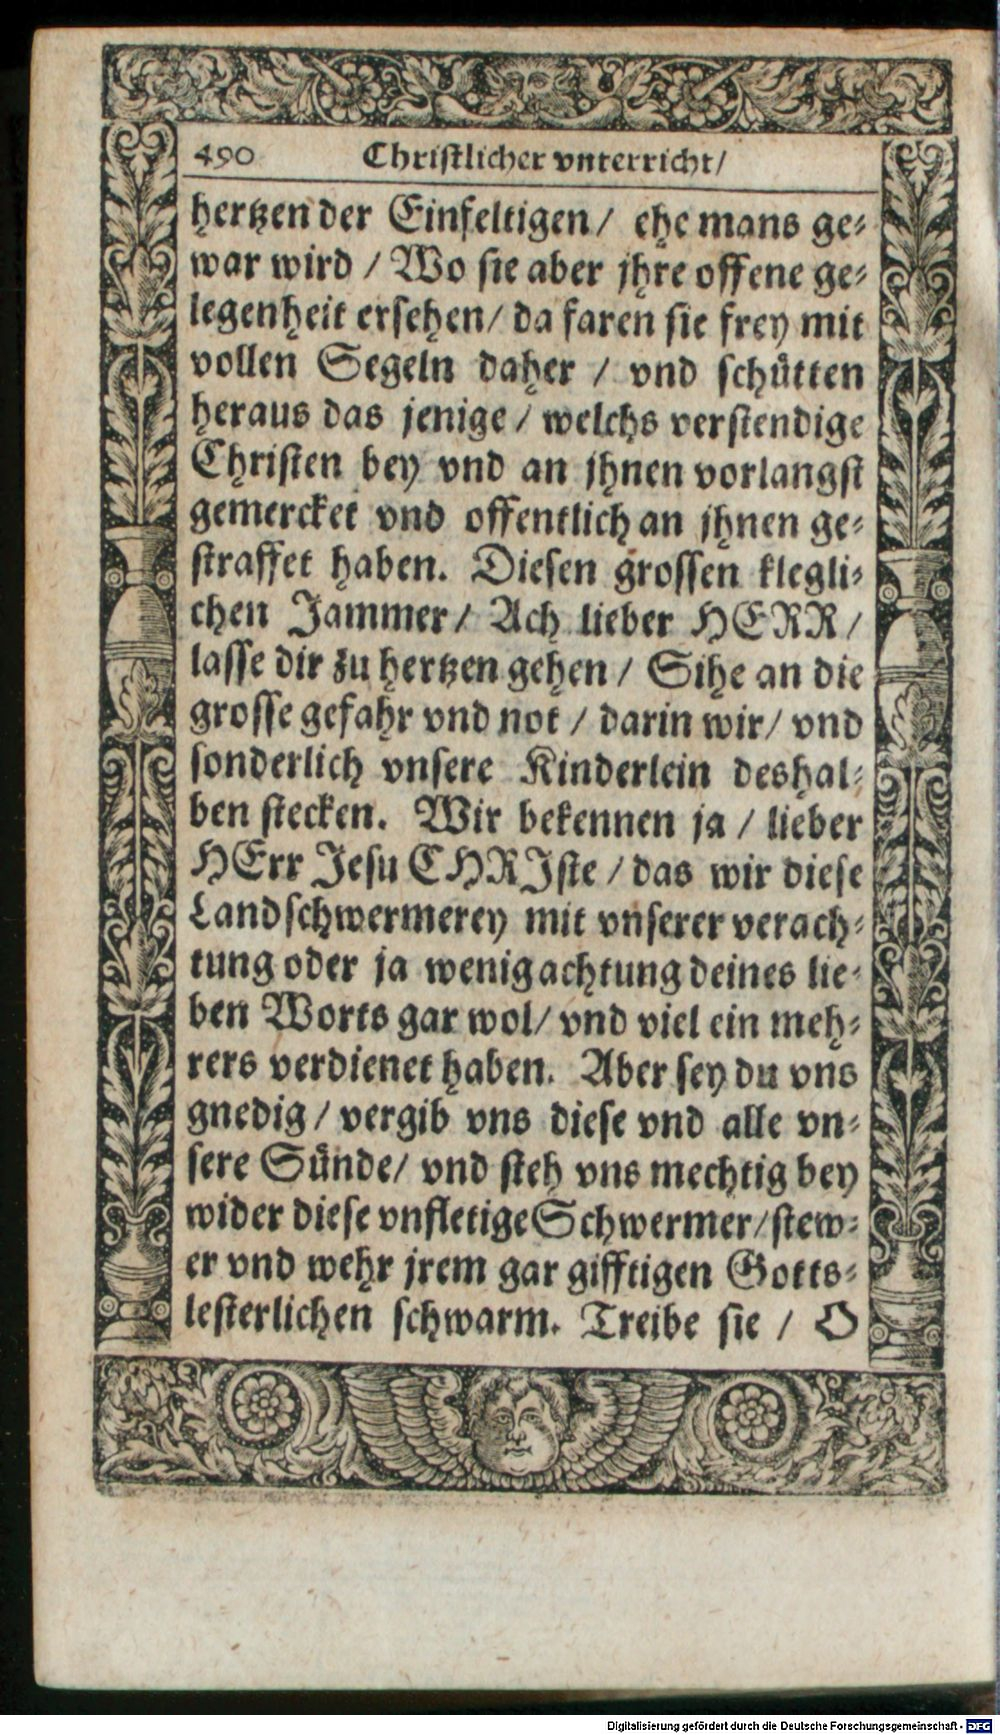 490 Christlicher vnterricht/
hertzen der Einfeltigen/ ehe mans ge-
war wird / Wo sie aber jhre offene ge-
legenheit ersehen/ da faren sie frey mit
vollen Segeln daher / vnd schütten
heraus das jenige / welchs verstendige
Christen bey vnd an jhnen vorlangst
gemercket vnd offentlich an jhnen ge-
straffet haben. Diesen grossen klegli-
chen Jammer/ Ach lieber HERR/
lasse dir zu hertzen gehen / Sihe an die
grosse gefahr vnd not / darin wir/ vnd
sonderlich vnsere Kinderlein deshal-
ben stecken. Wir bekennen ja / lieber
HErr Jesu CHRJste / das wir diese
Landschwermerey mit vnserer verach-
tung oder ja wenig achtung deines lie-
ben Worts gar wol/ vnd viel ein meh-
rers verdienet haben. Aber sey du vns
gnedig / vergib vns diese vnd alle vn-
sere Sünde/ vnd steh vns mechtig bey
wider diese vnfletige Schwermer/ stew-
er vnd wehr jrem gar gifftigen Gotts-
lesterlichen schwarm. Treibe sie / O
Digitalisierung gefördert durch die Deutsche Forschungsgemeinschaft - DFG